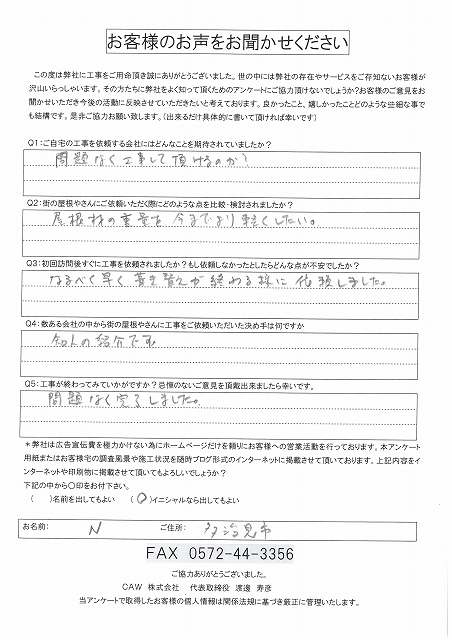 お客様のお声をお聞かせください
この度は弊社に工事をご用命頂き誠にありがとうございました。世の中には弊社の存在やサービスをご存知ないお客様が
沢山いらっしゃいます。その方たちに弊社をよく知って頂くためのアンケートにご協力頂けないでしょうか?お客様のご意見をお
聞かせいただき今後の活動に反映させていただきたいと考えております。良かったこと、嬉しかったことどのような些細な事で
も結構です。是非ご協力お願い致します。(出来るだけ具体的に書いて頂ければ幸いです)
Q1:ご自宅の工事を依頼する会社にはどんなことを期待されていましたか?
問題なく工事して頂けるのか?
Q2:街の屋根やさんにご依頼いただく際にどのような点を比較・検討されましたか?
屋根材の重量を今までより軽くしたい。
Q3:初回訪問後すぐに工事を依頼されましたか?もし依頼しなかったとしたらどんな点が不安でしたか?
なるべく早く葺き替えが終わる様に依頼しました。
Q4:数ある会社の中から街の屋根やさんに工事をご依頼いただいた決め手は何ですか
知人の紹介です
Q5:工事が終わってみていかがですか?忌憚のないご意見を頂戴出来ましたら幸いです。
問題なく完了しました。
*弊社は広告宣伝費を極力かけない為にホームページだけを頼りにお客様への営業活動を行っております。本アンケート
用紙またはお客様宅の調査風景や施工状況を随時ブログ形式のインターネットに掲載させて頂いております。上記内容をイ
ンターネットや印刷物に掲載させて頂いてもよろしいでしょうか?
下記の中から〇印をお付下さい。
( )名前を出してもよい (〇)イニシャルなら出してもよい
お名前: N ご住所: 多治見市
FAX 0572-44-3356
ご協力ありがとうございました。
CAW 株式会社 代表取締役 渡邊 寿彦
当アンケートで取得したお客様の個人情報は関係法規に基づき厳正に管理いたします。